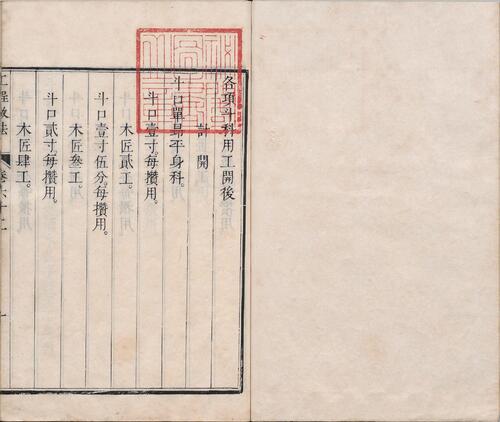 各項斗科用工開後
計開
斗口單昻平身科。
斗口壹寸。每攢用。
木匠貳工。
斗口壹寸伍分。每攢用。
木匠叁工。
斗口貳寸。每攢用。
木匠肆工。
工程做法
卷六十二
一